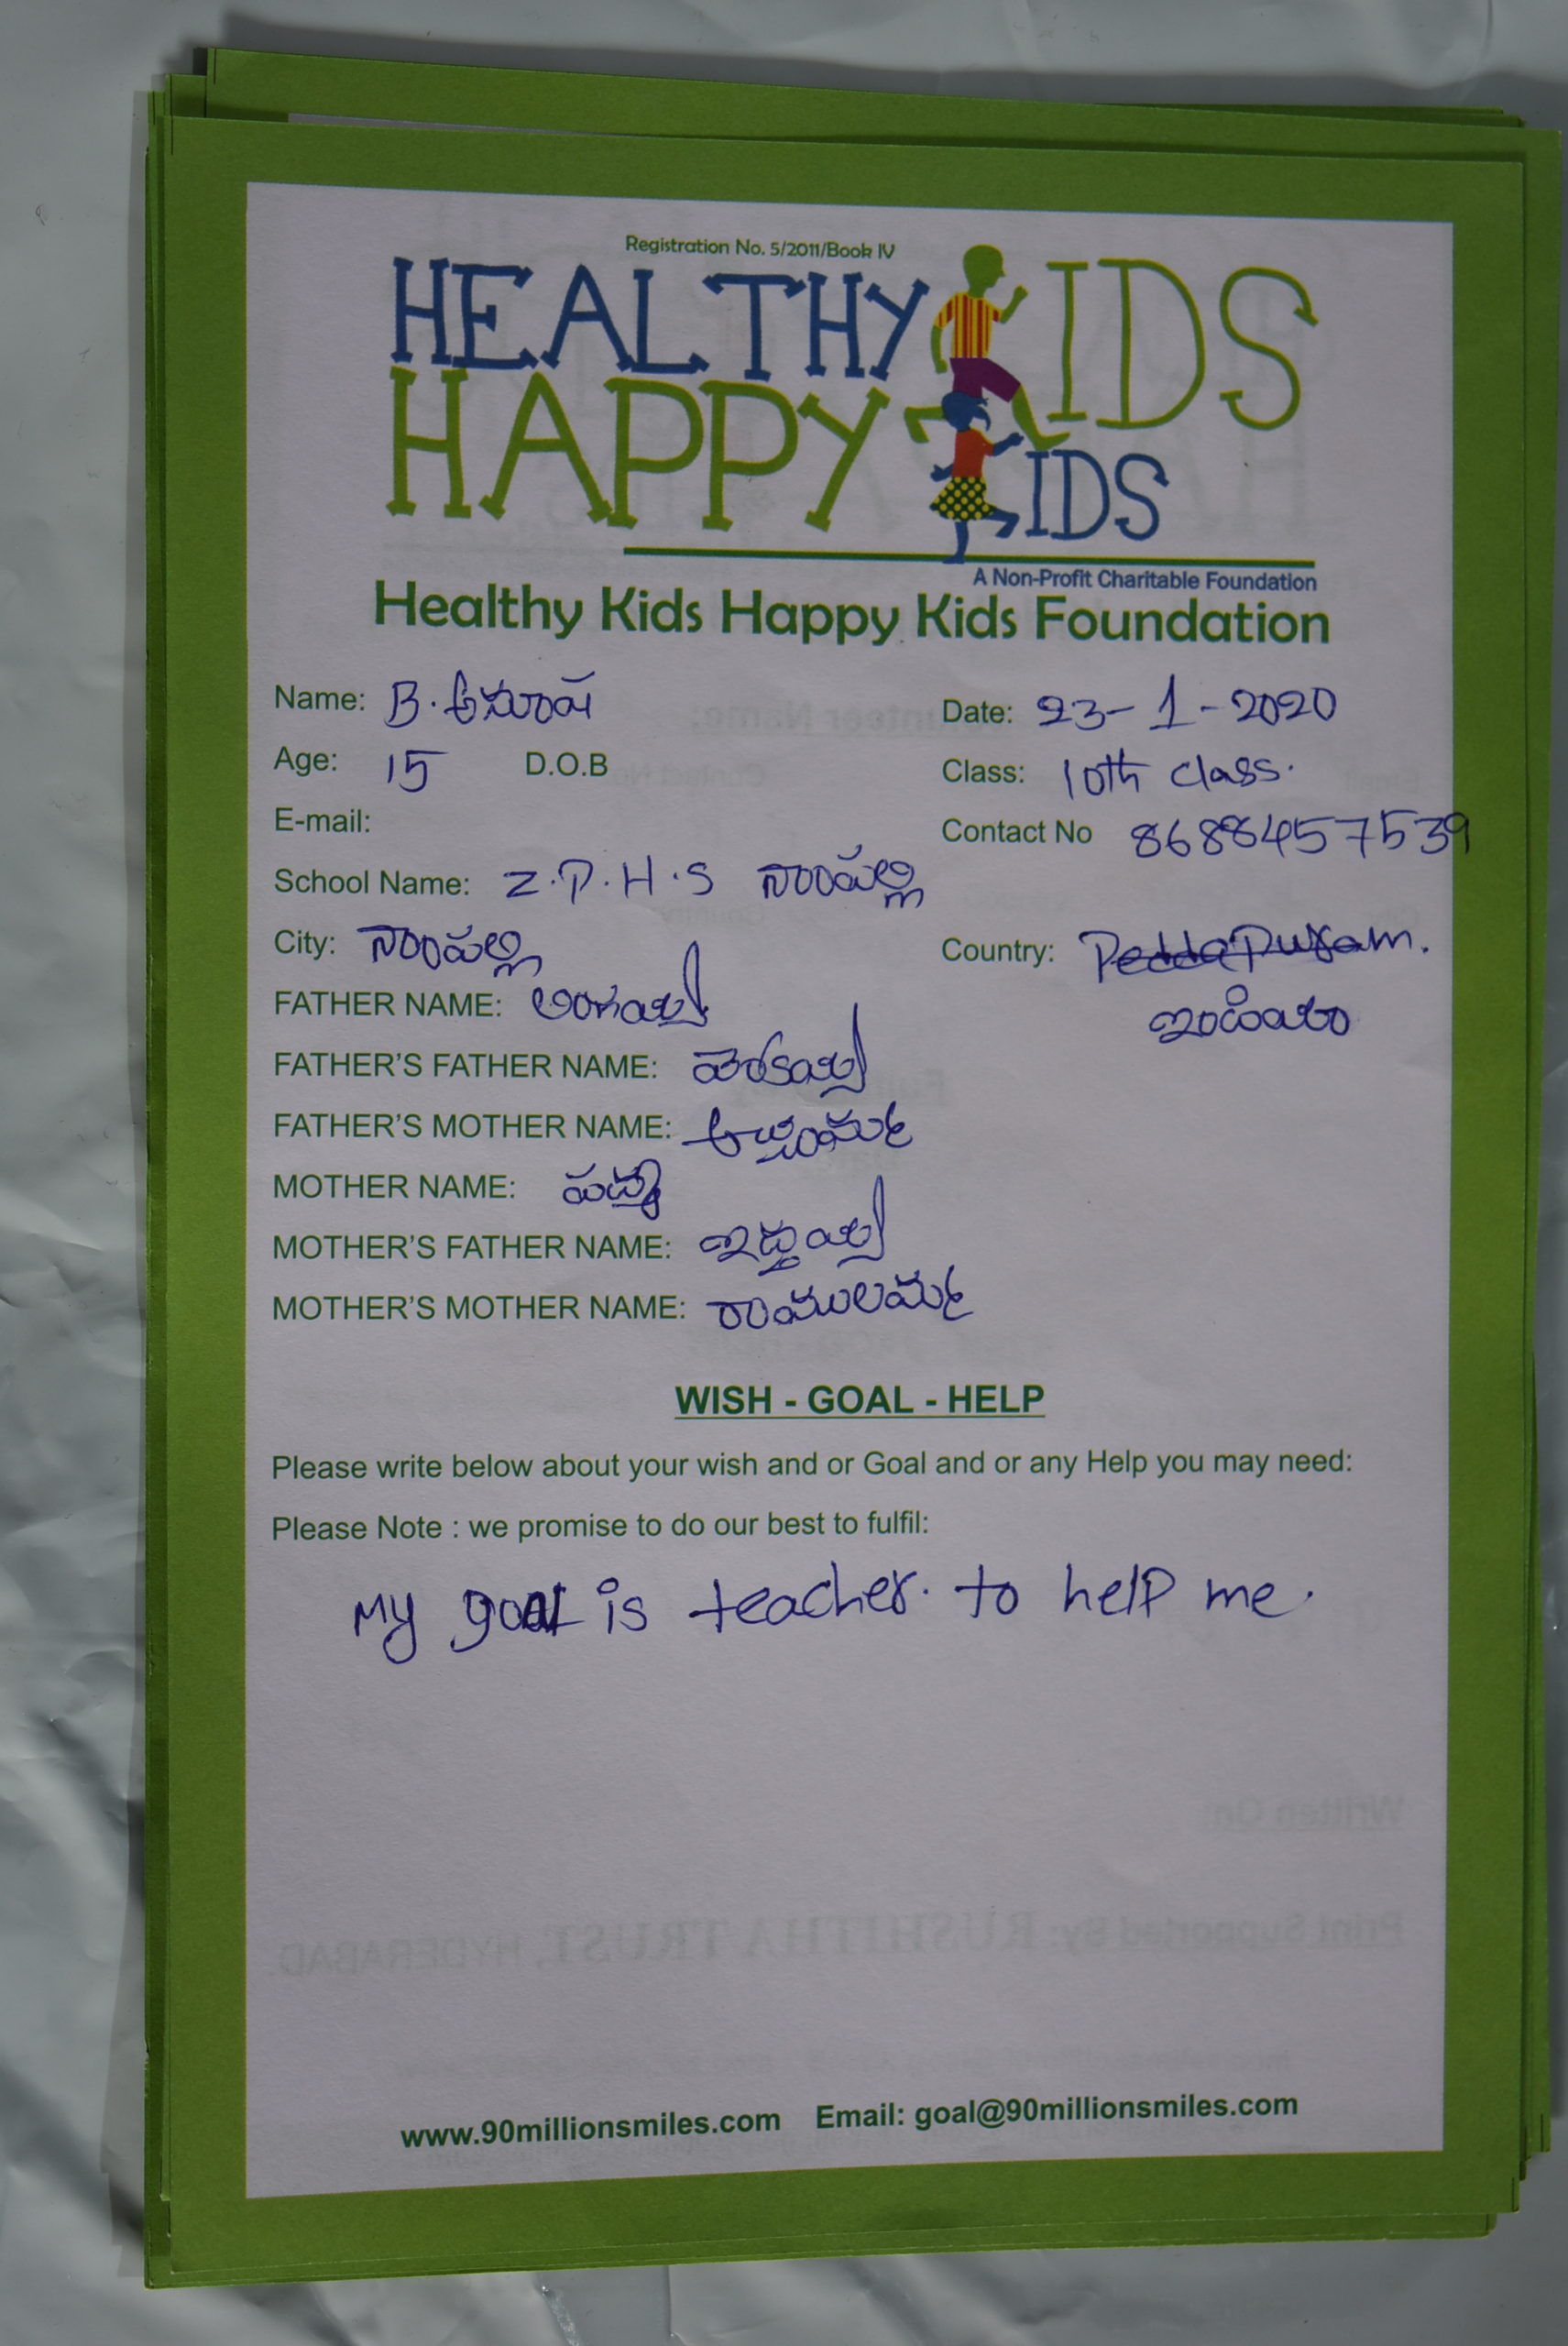 Registration No. 5/2011/Book IV
HEALTHY KIDS
HAPPY KIDS
A Non-Profit Charitable Foundation
Healthy Kids Happy Kids Foundation
Name: B. Date: 23-1-2020
Age: 15 D.O.B Class: 10th class.
E-mail: Contact No 8688457539
School Name: Z.P.H.S నాంపల్లి
City: నాంపల్లి Country: PeddaPuram.
ఇండియా
FATHER NAME:
FATHER'S FATHER NAME:
FATHER'S MOTHER NAME:
MOTHER NAME: పద్మ
MOTHER'S FATHER NAME: ఇద్దయ్య
MOTHER'S MOTHER NAME: రాములమ్మ
WISH - GOAL - HELP
Please write below about your wish and or Goal and or any Help you may need:
Please Note : we promise to do our best to fulfil:
My goal is teacher. to help me.
www.90millionsmiles.com Email: goal@90millionsmiles.com